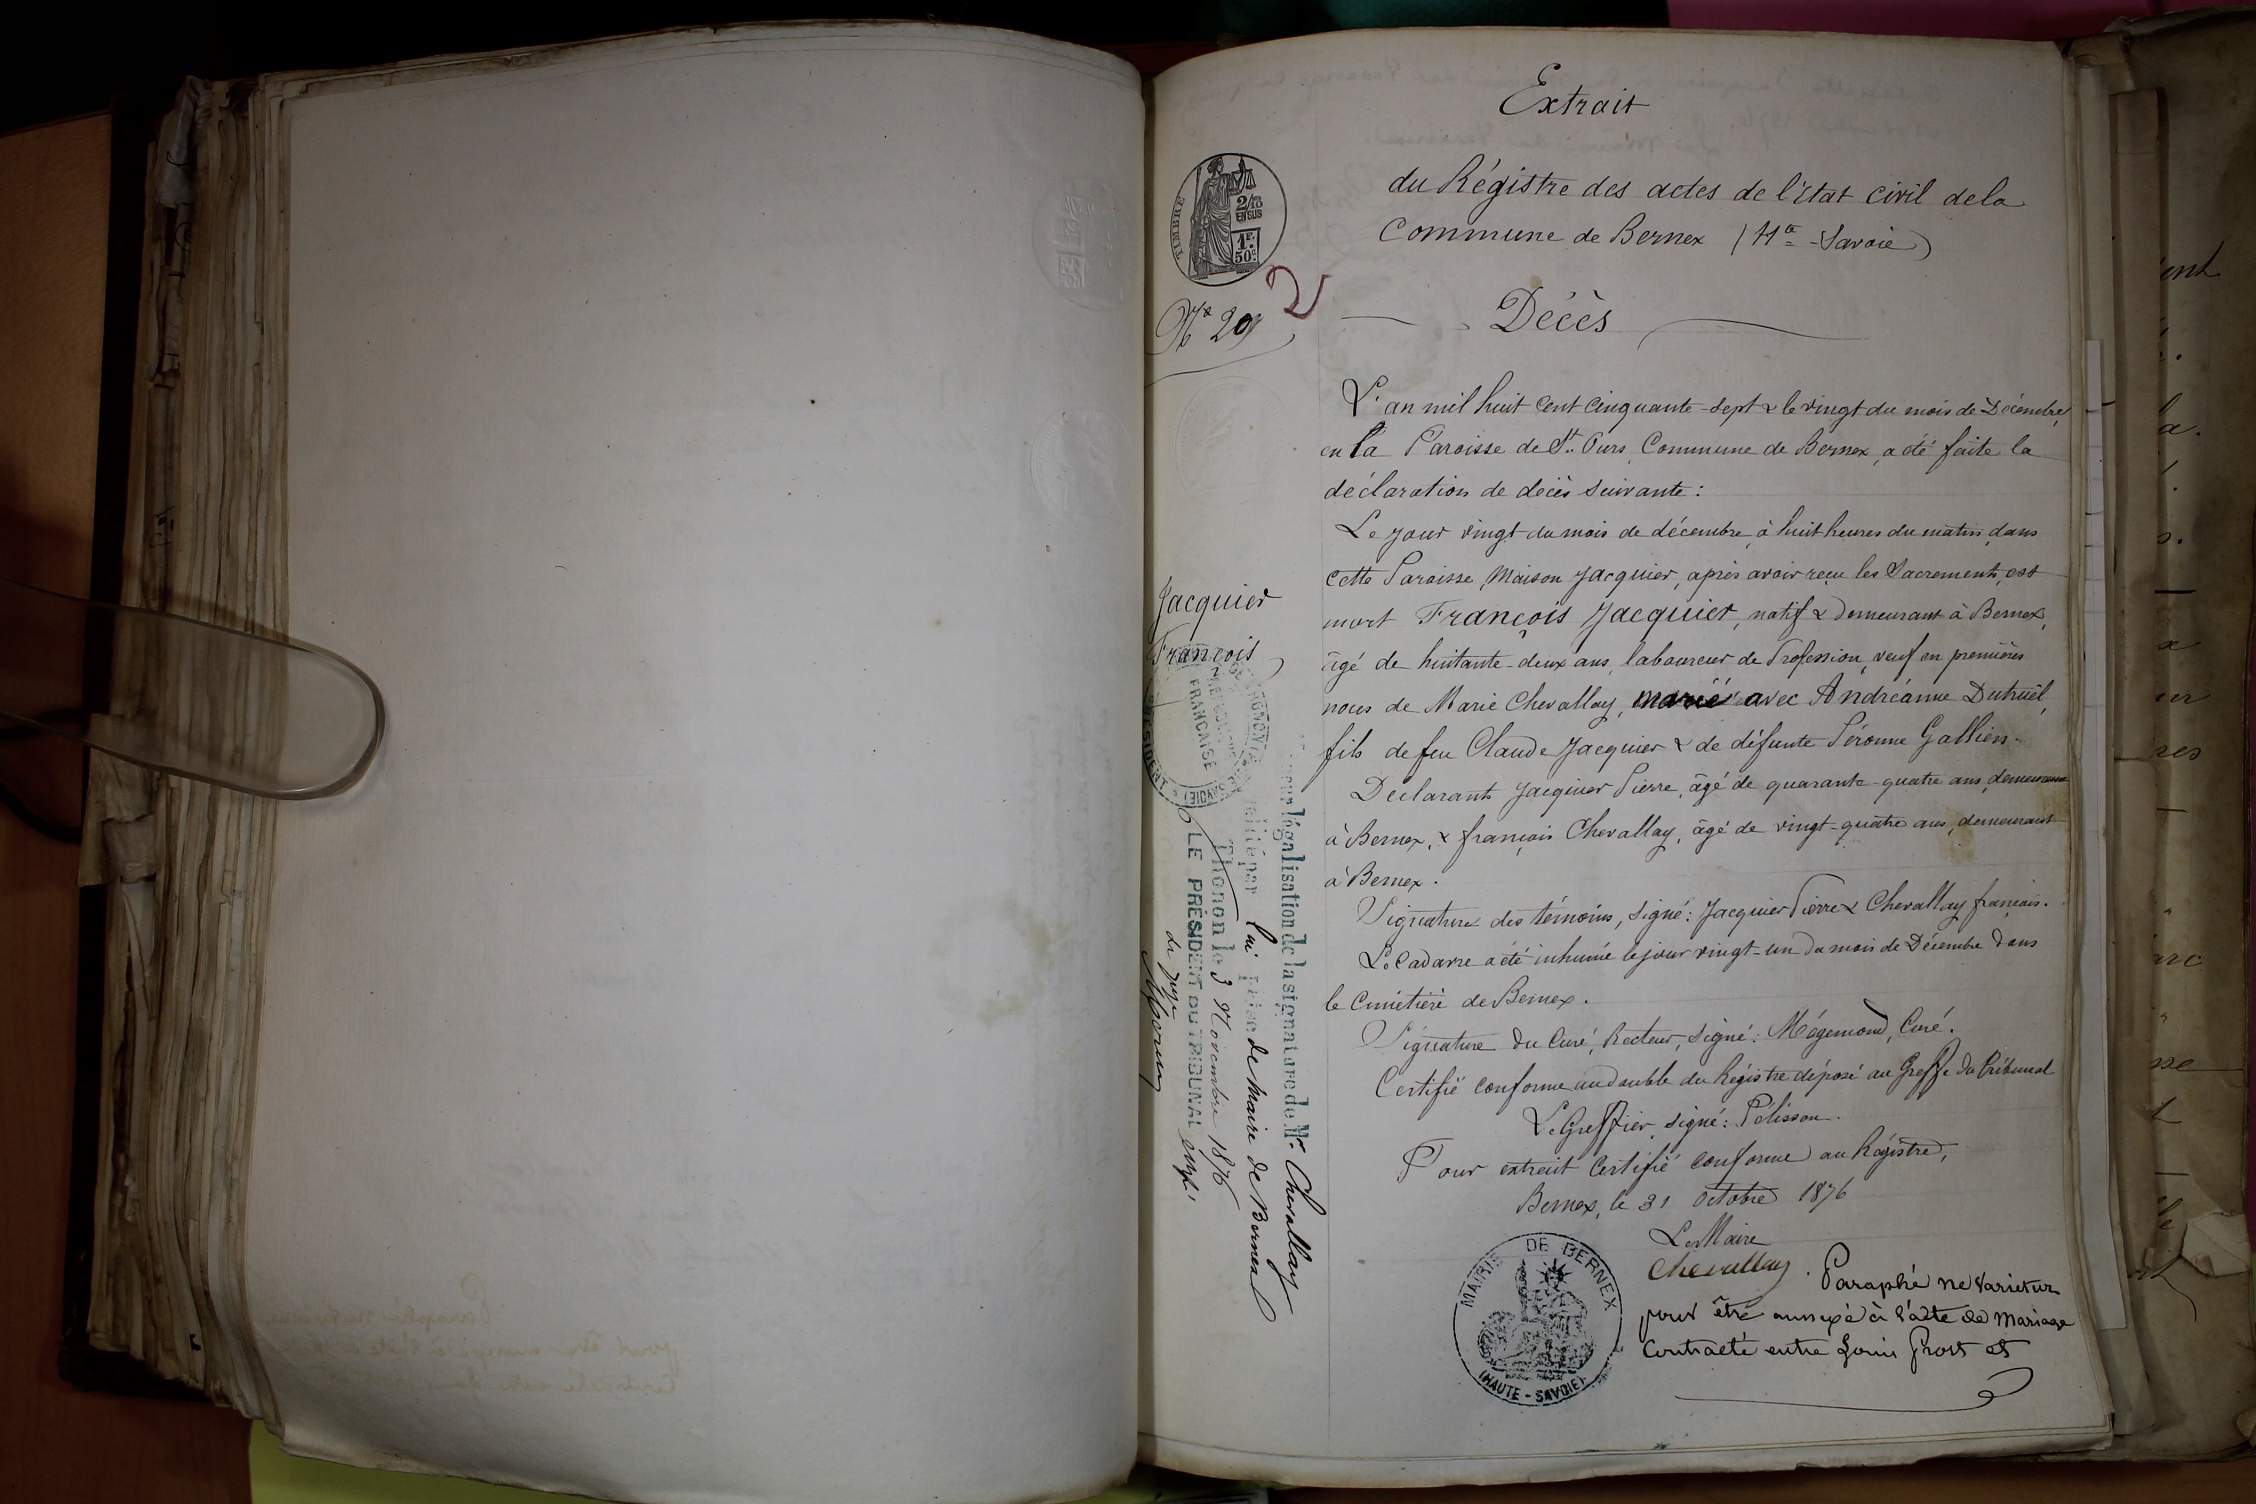 Extrait
du Régistre des actes de l'état civil de la
Commune de Bernex (Hte-Savoie)
TIMBRE
2/10
EN SUS
1F.
50c
2
No 29
Décès
L'an mil huit cent cinquante-sept & le vingt du mois de Décembre,
en la Paroisse de St. Ours, Commune de Bernex, a été faite la
déclaration de décès suivante:
Le jour vingt du mois de décembre, à huit heures du matin, dans
cette Paroisse, Maison Jacquier, après avoir reçu les Sacrements, est
mort François Jacquier, natif & demeurant à Bernex,
âgé de huitante-deux ans, laboureur de Profession, veuf en premières
noces de Marie Chevallay, marié avec Andréanne Dutruël,
fils de feu Claude Jacquier & de défunte Péronne Gallien.
Déclarants Jacquier Pierre, âgé de quarante-quatre ans, demeurant
à Bernex, & françois Chevallay, âgé de vingt-quatre ans, demeurant
à Bernex.
Signature des témoins, signé: Jacquier Pierre & Chevallay françois.
Le Cadavre a été inhumé le jour vingt-un du mois de Décembre dans
le Cimétière de Bernex.
Signature du Curé, Recteur, signé: Mégemond, Curé.
Certifié conforme au double du Régistre déposé au Greffe du Tribunal
Le Greffier, signé: Pélisson.
Pour extrait Certifié conforme au Régistre,
Bernex, le 31 octobre 1876
Le Maire
Chevallay.
Paraphé ne varietur
pour être annexé à l'acte de mariage
contracté entre Louis Prost et
MAIRIE DE BERNEX
(HAUTE-SAVOIE)
Jacquier
François
légalisation de la signature de Mr. Chevallay
de maire de Bernex
Thonon le 3 Novembre 1876
LE PRÉSIDENT DU TRIBUNAL
FRANÇAISE